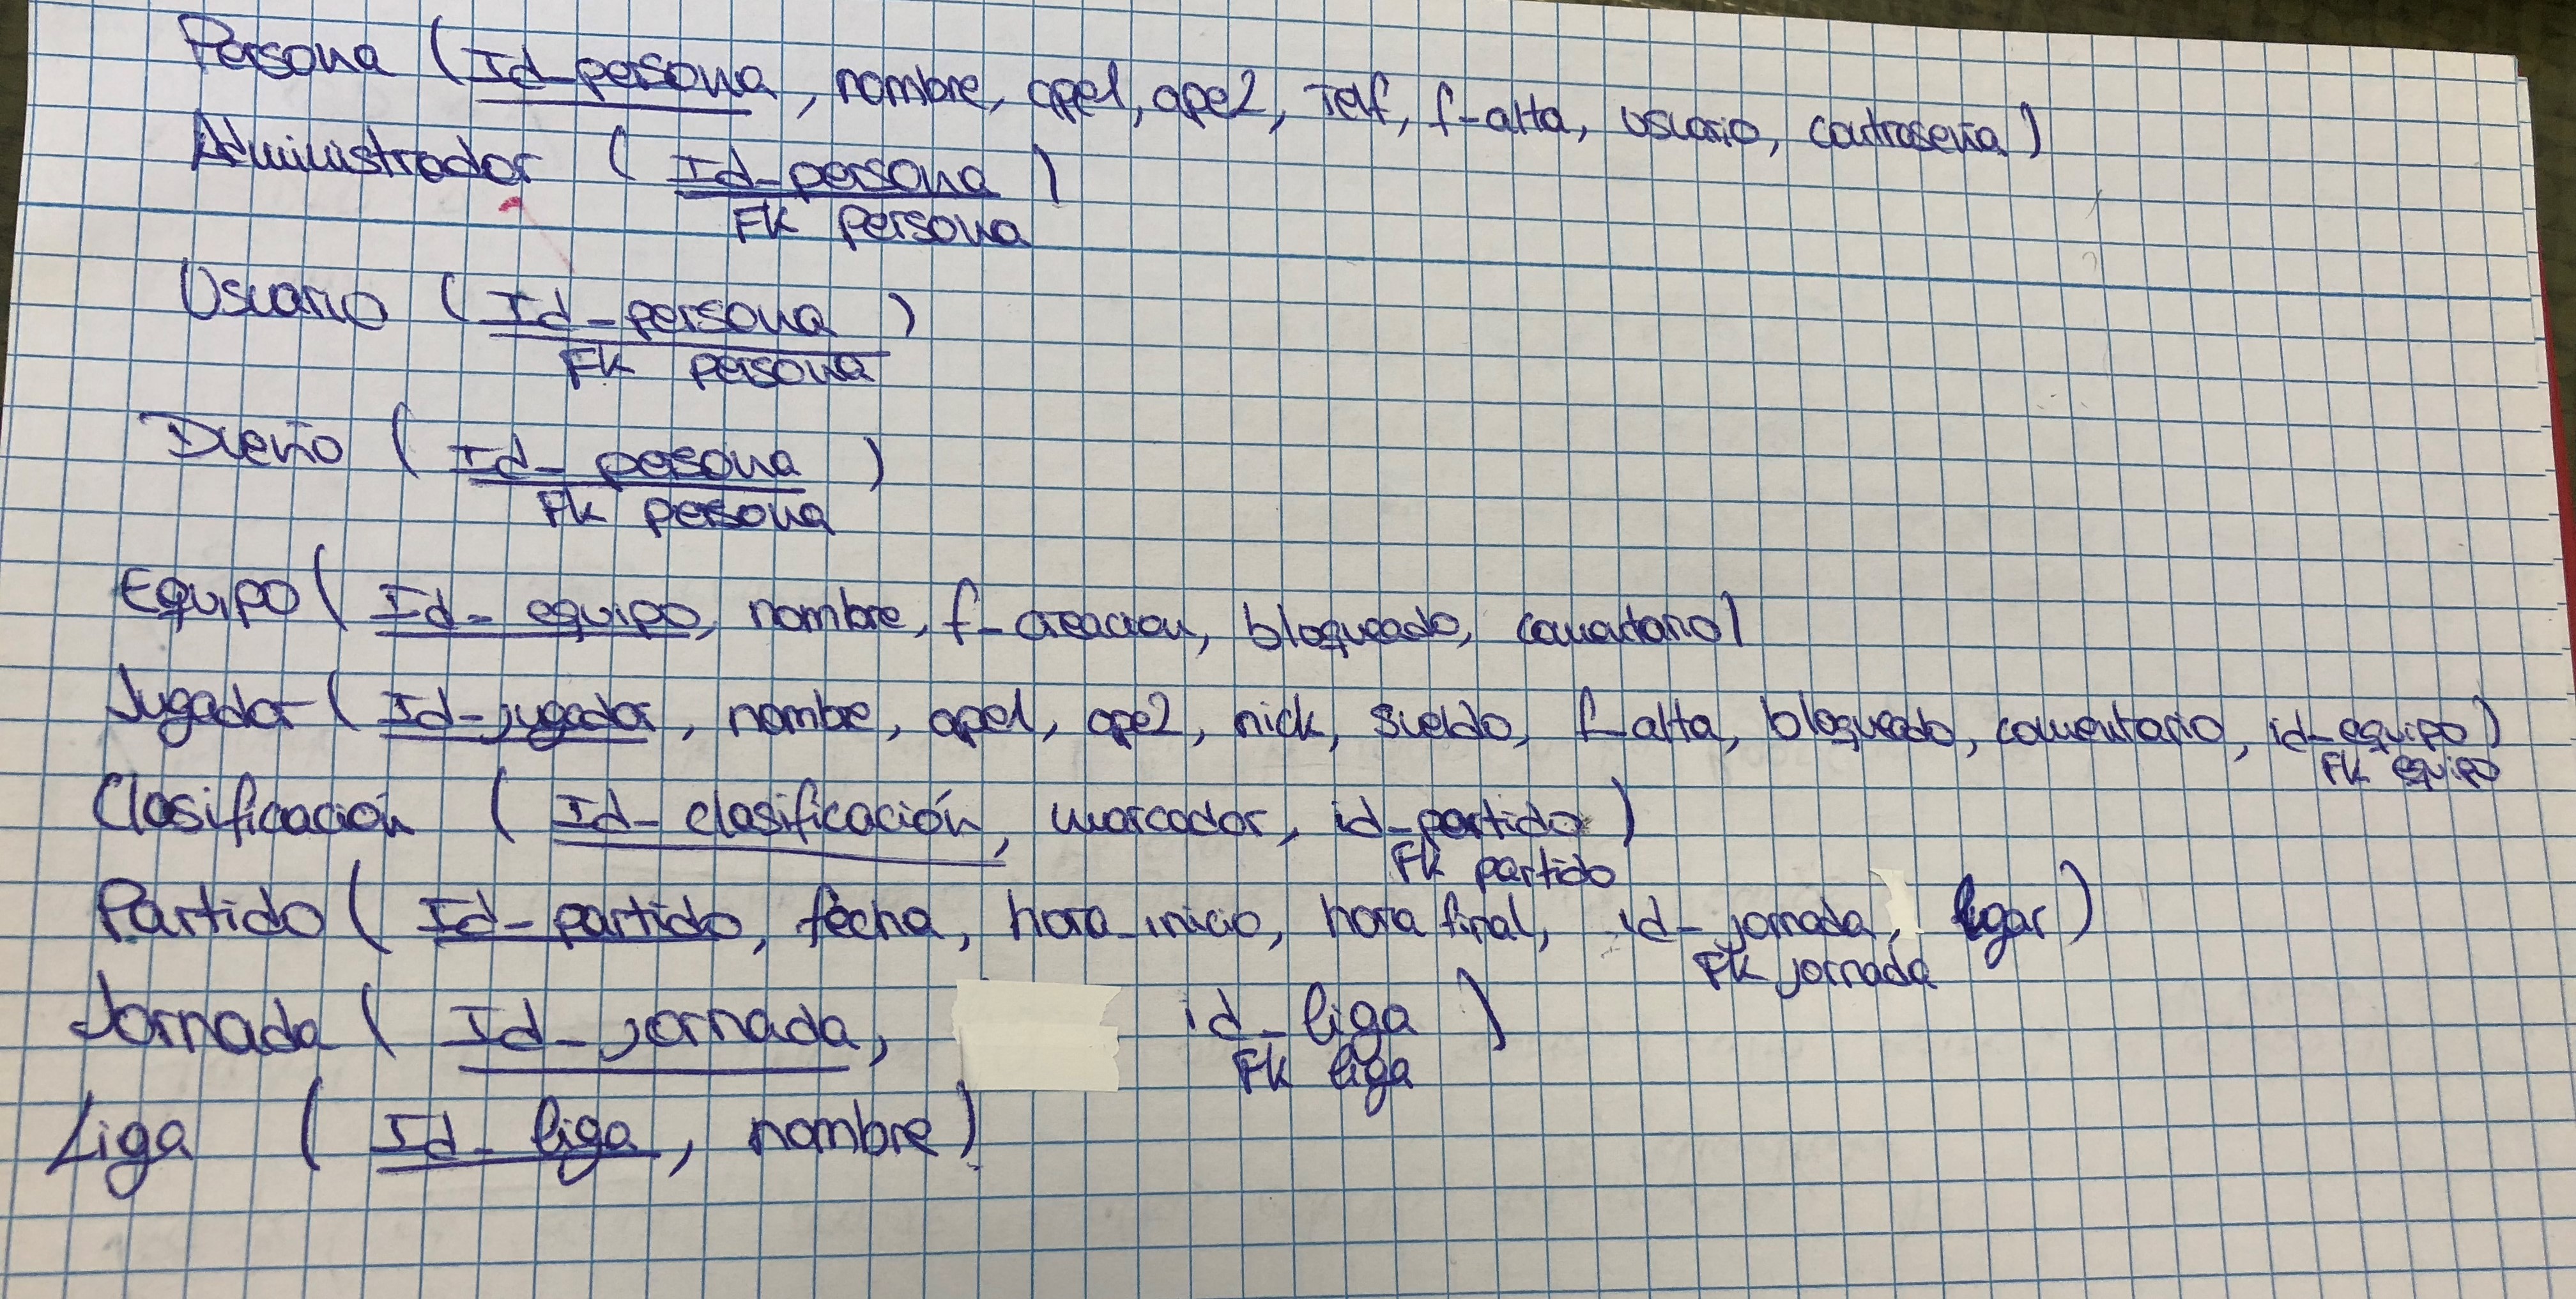 Persona (Id_persona, nombre, ape1, ape2, Telf, f_alta, usuario, contraseña)
Administrador (Id_persona)
FK persona
Usuario (Id_persona)
FK persona
Dueño (Id_persona)
FK persona
Equipo (Id_equipo, nombre, f_creacion, bloqueado, comentario)
Jugador (Id_jugador, nombre, ape1, ape2, nick, sueldo, f_alta, bloqueado, comentario, id_equipo)
FK equipo
Clasificación (Id_clasificación, marcador, id_partido)
FK partido
Partido (Id_partido, fecha, hora_inicio, hora final, id_jornada, lugar)
FK jornada
Jornada (Id_jornada, id_liga)
FK liga
Liga (Id_liga, nombre)